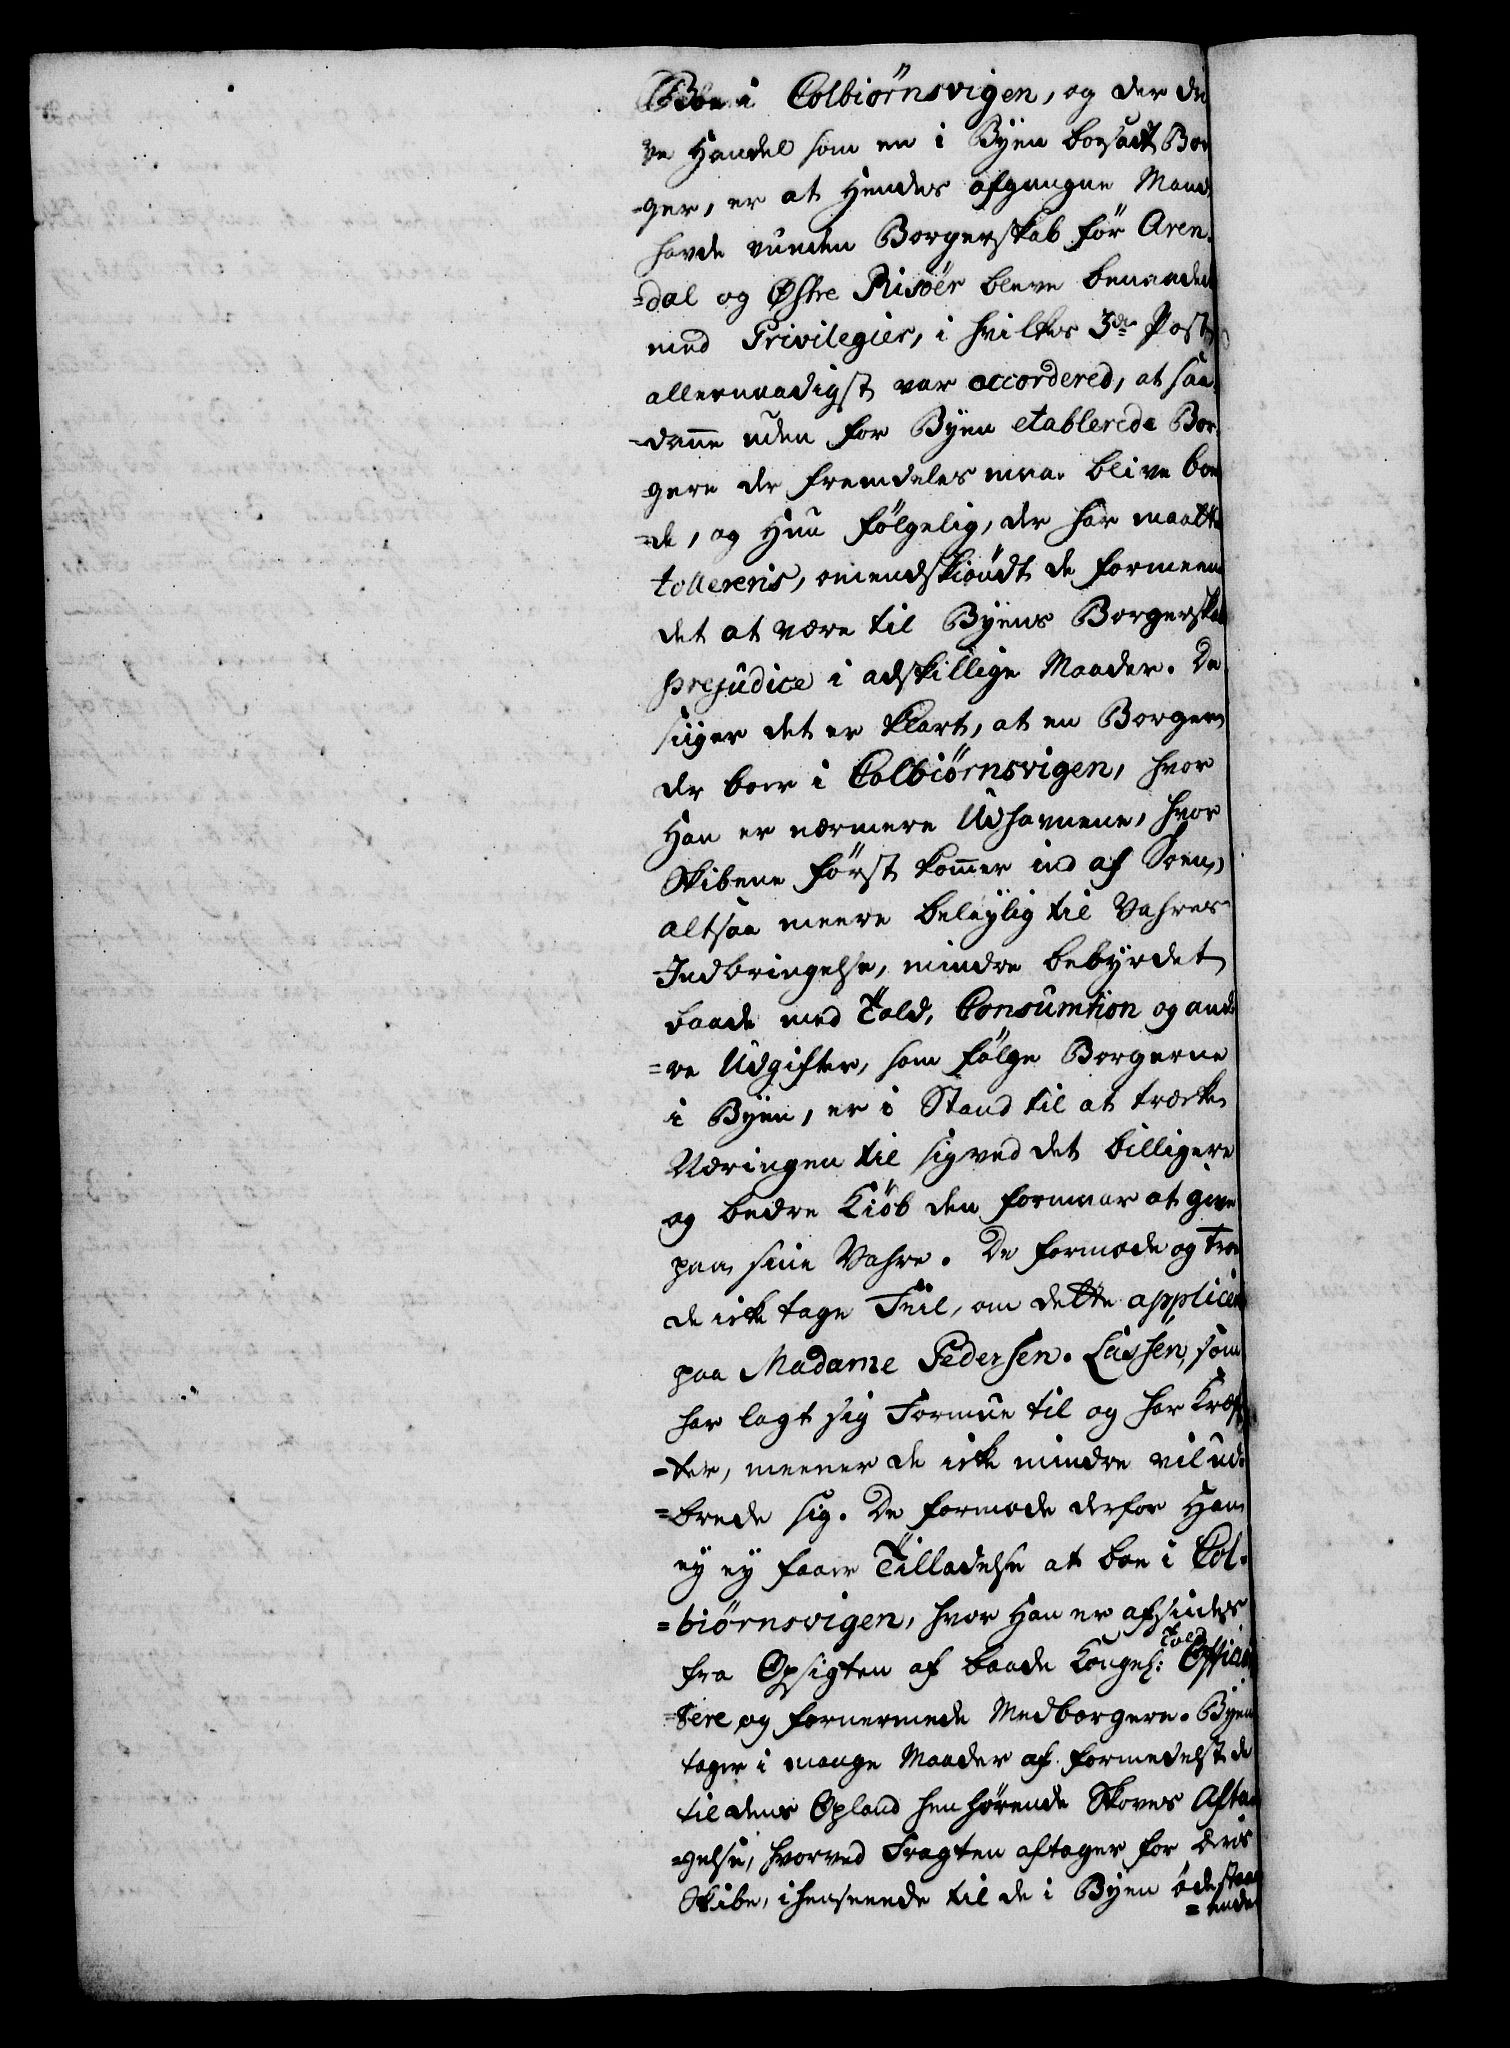 Boe i Colbiørnsvigen, og der dri
ve Handel som en i Byen boesadt Bor
-ger, er at Hendes afgangne Mand
havde vunden Borgerskab før Aren-
=dal og Østre Risøer bleve benaadet
med Privilegier, i hvilkes 3de Post
allernaadigst var accordered, at saa-
-danne uden for Byen etablerede Bor-
gere der fremdeles maa blive boe
=de, og Hun følgelig, der har maatte
tollereris, omendskiøndt de formeene
det at være til Byens Borgerskab
prejudice i adskillige Maader. De
siiger det er klart, at en Borger
der boer i Colbiørnsvigen, hvor
Han er nærmere Udhavnene, hvor
Skibene først kommer ind af Søen,
altsaa meere beleylig til Vahres
Indbringelse, mindre bebyrdet
baade med Told, Consumtion og and
=re Udgifter, som følge Borgerne
i Byen, er i Stand til at trække
Næringen til sig ved det billigere
og bedre Kiøb den formaar at give
paa sine Vahre. De formode og troe
de ikke tage Feil, om dette applicere
paa Madame Pedersen. Lassen, som
har lagt sig Formue til og har Kræf
=ter, meener de ikke mindre vil ud-
=brede sig. De formode derfor Han
ey faaer Tilladelse at boe i Col-
=biørnsvigen, hvor Han er afsides
fra Opsigten af baade Kongel: Told Offician
=tere og fornermede Medborgere. Byen
tager i mange Maader af formedelst de
til dens Opland henhørende Skoves Aftag
=gelse, hvorved Fragten aftager for deris
Skibe, i henseende til de i Byen øde staa
=ende